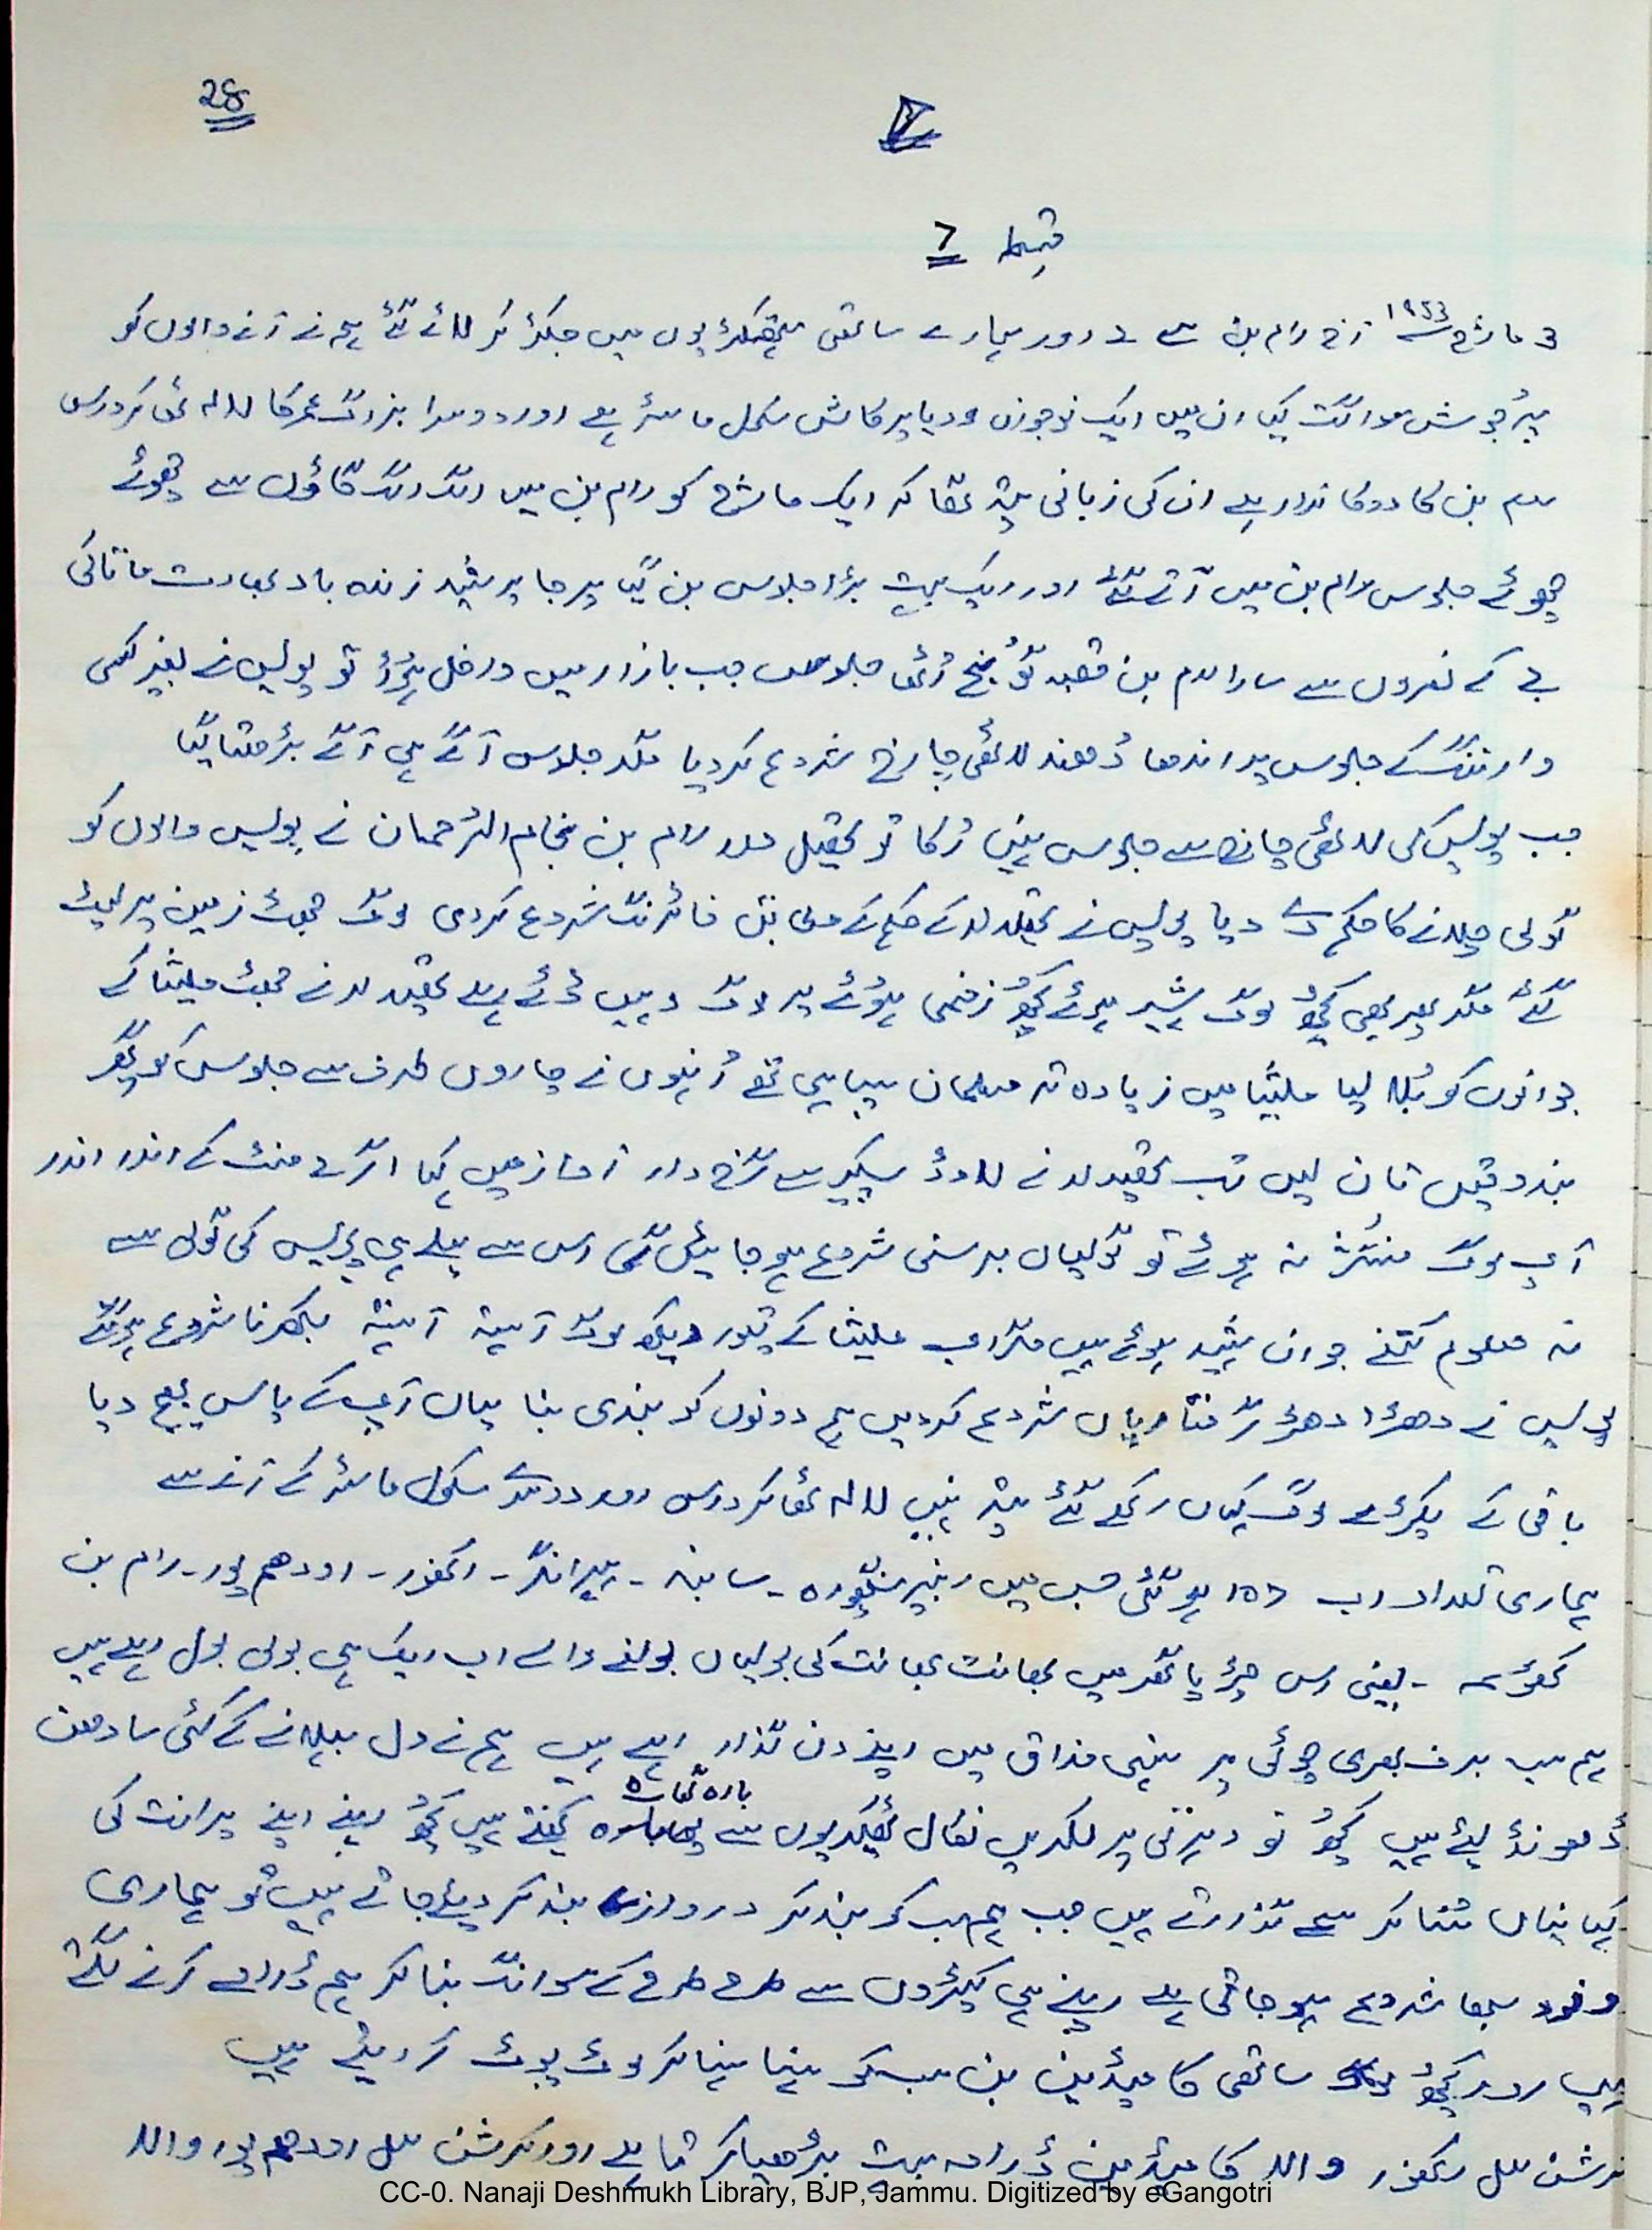 28
قسط 7
3 مارچ 1953 آج رام بن سے 2 اور ہمارے ساتھی ہتھکڑیوں میں جکڑ کر لائے گئے ہم نے آنے والوں کو
پُرجوش سواگت کیا ان میں ایک نوجوان ودیا پرکاش سکول ماسٹر ہے اور دوسرا بزرگ عمر کا لالہ ٹھاکر داس
رام بن کا دوکاندار ہے ان کی زبانی پتہ تھا کہ ایک مارچ کو رام بن میں الگ الگ گاؤں سے چھوٹے
چھوٹے جلوس رام بن میں آتے گئے اور ایک بہت بڑا جلوس بن گیا پرجا پریشد زندہ باد بھارت ماتا کی
جے کے نعروں سے سارا رام بن قصبہ گونج اُٹھا جلوس جب بازار میں داخل ہوا تو پولیس نے بغیر کسی
وارننگ کے جلوس پر اندھا دُھند لاٹھی چارج شروع کر دیا مگر جلوس آگے ہی آگے بڑھتا گیا
جب پولیس کی لاٹھی چارج سے جلوس نہیں رُکا تو تحصیلدار رام بن غلام الرحمان نے پولیس والوں کو
گولی چلانے کا حکم دے دیا پولیس نے تحصیلدار کے حکم کے مطابق فائرنگ شروع کر دی لوگ جھٹ زمین پر لیٹ
گئے مگر پھر بھی کچھ لوگ شہید ہوئے کچھ زخمی ہوئے پر لوگ وہیں ڈٹے رہے تحصیلدار نے جھٹ ملیشیا کے
جوانوں کو بُلا لیا ملیشیا میں زیادہ تر مسلمان سپاہی تھے اُنہوں نے چاروں طرف سے جلوس کو گھیر
بندوقیں تان لیں تب تحصیلدار نے لاوڈ سپیکر سے گرج دار آواز میں کہا اگر 2 منٹ کے اندر اندر
آپ لوگ منتشر نہ ہوئے تو گولیاں برسنی شروع ہو جائیں گی اس سے پہلے ہی پولیس کی گولی سے
نہ معلوم کتنے جوان شہید ہوئے ہیں مگر اب ملیشیا کے تیور دیکھ لوگ آہستہ آہستہ بکھرنا شروع ہو گئے
پولیس نے دھڑا دھڑ گرفتاریاں شروع کر دیں ہم دونوں کو بندی بنا یہاں آپ کے پاس بھیج دیا
باقی کے پکڑے لوگ کہاں رکھے گئے پتہ نہیں لالہ ٹھاکر داس اور دوسرے سکول ماسٹر کے آنے سے
ہماری تعداد اب 157 ہو گئی جس میں رنبیر سنگھپورہ - سانبہ - ہیرانگر - اکھنور - اودھم پور - رام بن
کٹھوعہ - یعنی اس چڑیا گھر میں بھانت بھانت کی بولیاں بولنے والے اب ایک ہی بولی بول رہے ہیں
ہم سب برف بھری چوٹی پر ہنسی مذاق میں اپنے دن گذار رہے ہیں ہم نے دل بہلانے کے کئی سادھن
ڈھونڈ لئے ہیں کچھ تو دھرتی پر لکیریں نکال ٹھیکریوں سے بارہ گھاٹ کھیلتے ہیں کچھ اپنے اپنے پرانت کی
کہانیاں سُنا کر سمے گذارتے ہیں جب ہم سب کو بند کر دروازے بند کر دیئے جاتے ہیں تو ہماری
ونود سبھا شروع ہو جاتی ہے اپنے ہی کپڑوں سے طرح طرح کے سوانگ بنا کر ہم ڈرامے کرنے لگتے
ہیں اور کچھ ساتھی کامیڈین بن سب کو ہنسا ہنسا کر لوٹ پوٹ کر دیتے ہیں
کرشن لال اکھنور والا کامیڈین ڈرامہ بہت بڑھیا کرتا ہے اور کرشن لال اودھم پور والا
CC-0. Nanaji Deshmukh Library, BJP, Jammu. Digitized by eGangotri